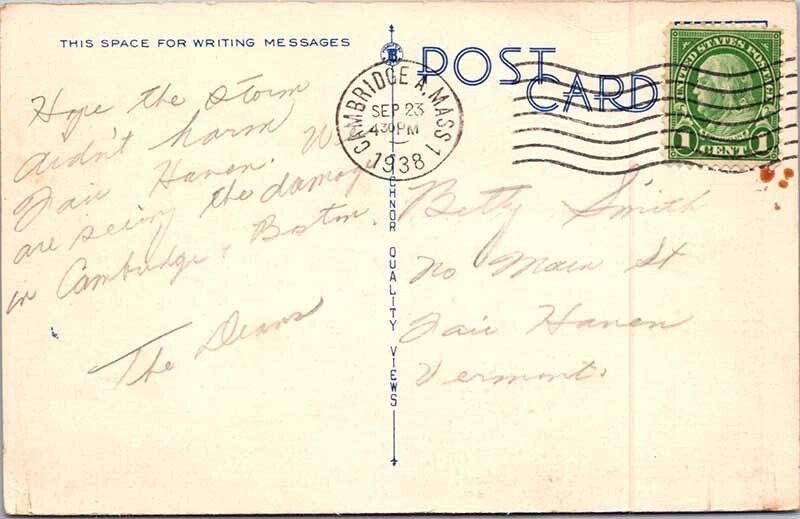 THIS SPACE FOR WRITING MESSAGES
POST
CARD
UNITED STATES POSTAGE
1 1
CENT
CAMBRIDGE A, MASS 1
SEP 23
430PM
1938
Hope the storm
didn't harm
Fair Haven. We
are seeing the damage
in Cambridge & Boston.
The Deans
TICHNOR QUALITY VIEWS
Betty Smith
No Main St
Fair Haven
Vermont.